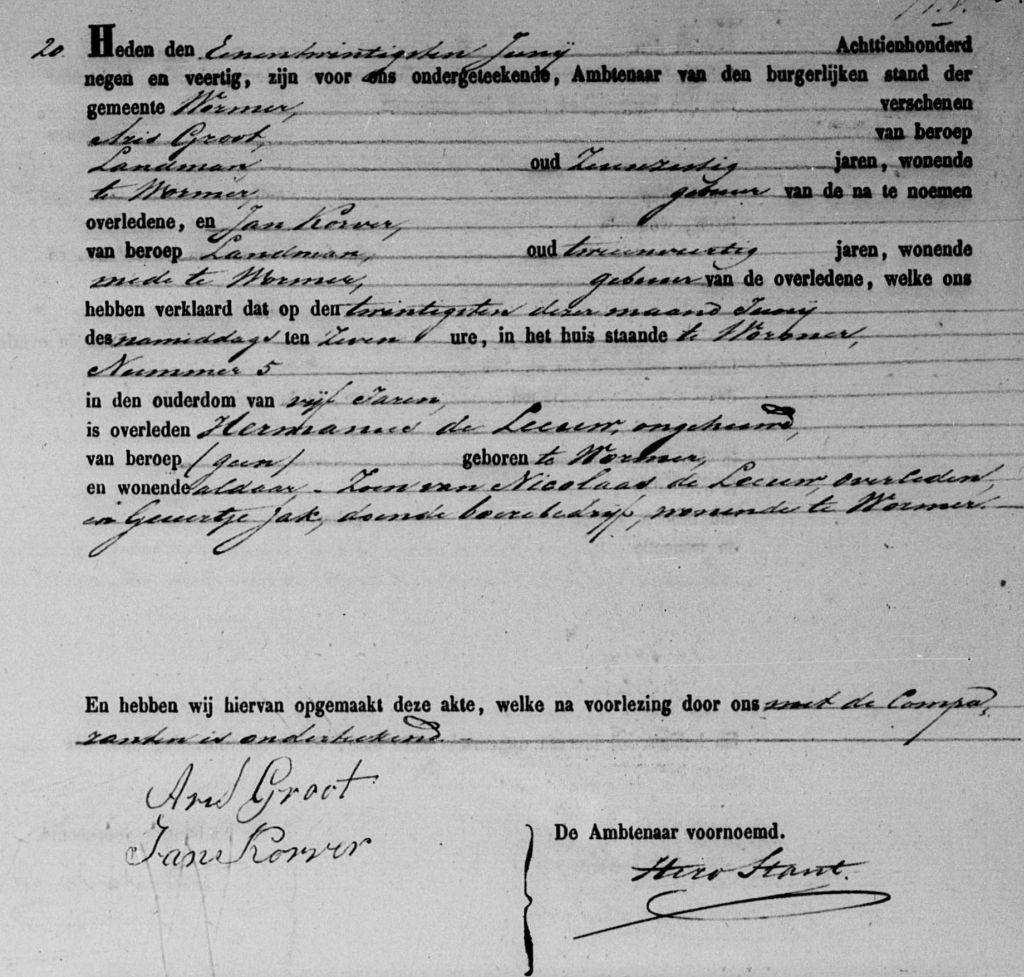 20. Heden den Eenentwintigsten Junij Achttienhonderd
negen en veertig, zijn voor ons ondergeteekende, Ambtenaar van den burgerlijken stand der
gemeente Wormer, verschenen
Aris Groot, van beroep
Landman oud jaren, wonende
te Wormer, gebuur van de na te noemen
overledene, en Jan Korver,
van beroep Landman, oud tweeenveertig jaren, wonende
mede te Wormer, gebuur van de overledene, welke ons
hebben verklaard dat op den twintigsten dezer maand Junij
des namiddags ten Zeven ure, in het huis staande te Wormer,
Nummer 5
in den ouderdom van vijf Jaren,
is overleden Hermanus de Leeuw, ongehuwd,
van beroep (geen) geboren te Wormer,
en wonende aldaar, - Zoon van Nicolaas de Leeuw, overleden,
en Geertje Jak, doende boerebedrijf, wonende te Wormer. -
En hebben wij hiervan opgemaakt deze akte, welke na voorlezing door ons met de Compa-
ranten is onderteekend. -
Aris Groot
Jan Korver
De Ambtenaar voornoemd.
Stant.